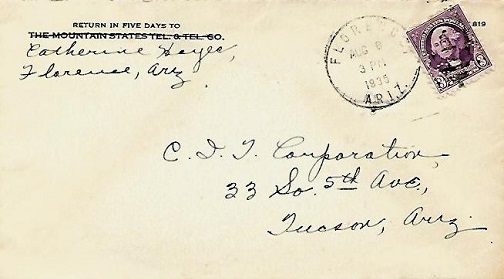 RETURN IN FIVE DAYS TO
THE MOUNTAIN STATES TEL. & TEL. CO.
Catherine Hayes
Florence, Ariz
819
FLORENCE
AUG 8
3 PM
1935
ARIZ.
3
C. I. T. Corporation,
33 So. 5th Ave.,
Tucson, Ariz.